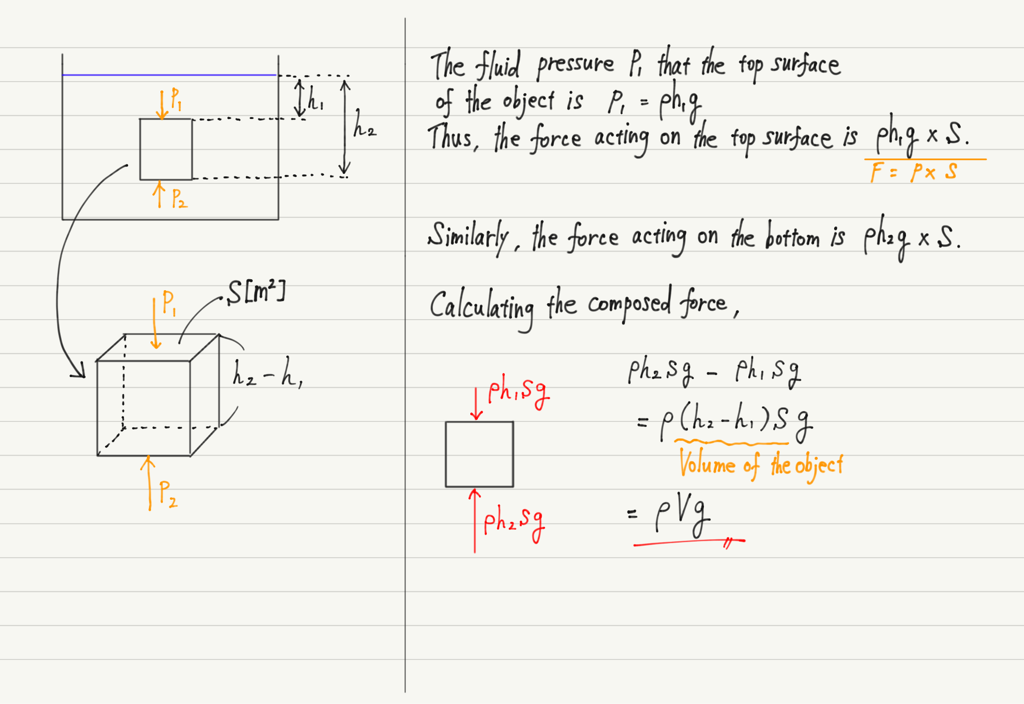 P₁
h₁
h₂
P₂
P₁
S[m²]
h₂ - h₁
P₂
The fluid pressure P₁ that the top surface
of the object is P₁ = ρh₁g
Thus, the force acting on the top surface is ρh₁g × S.
F = P × S
Similarly, the force acting on the bottom is ρh₂g × S.
Calculating the composed force,
ρh₁Sg
ρh₂Sg
ρh₂Sg - ρh₁Sg
= ρ(h₂-h₁)Sg
Volume of the object
= ρVg